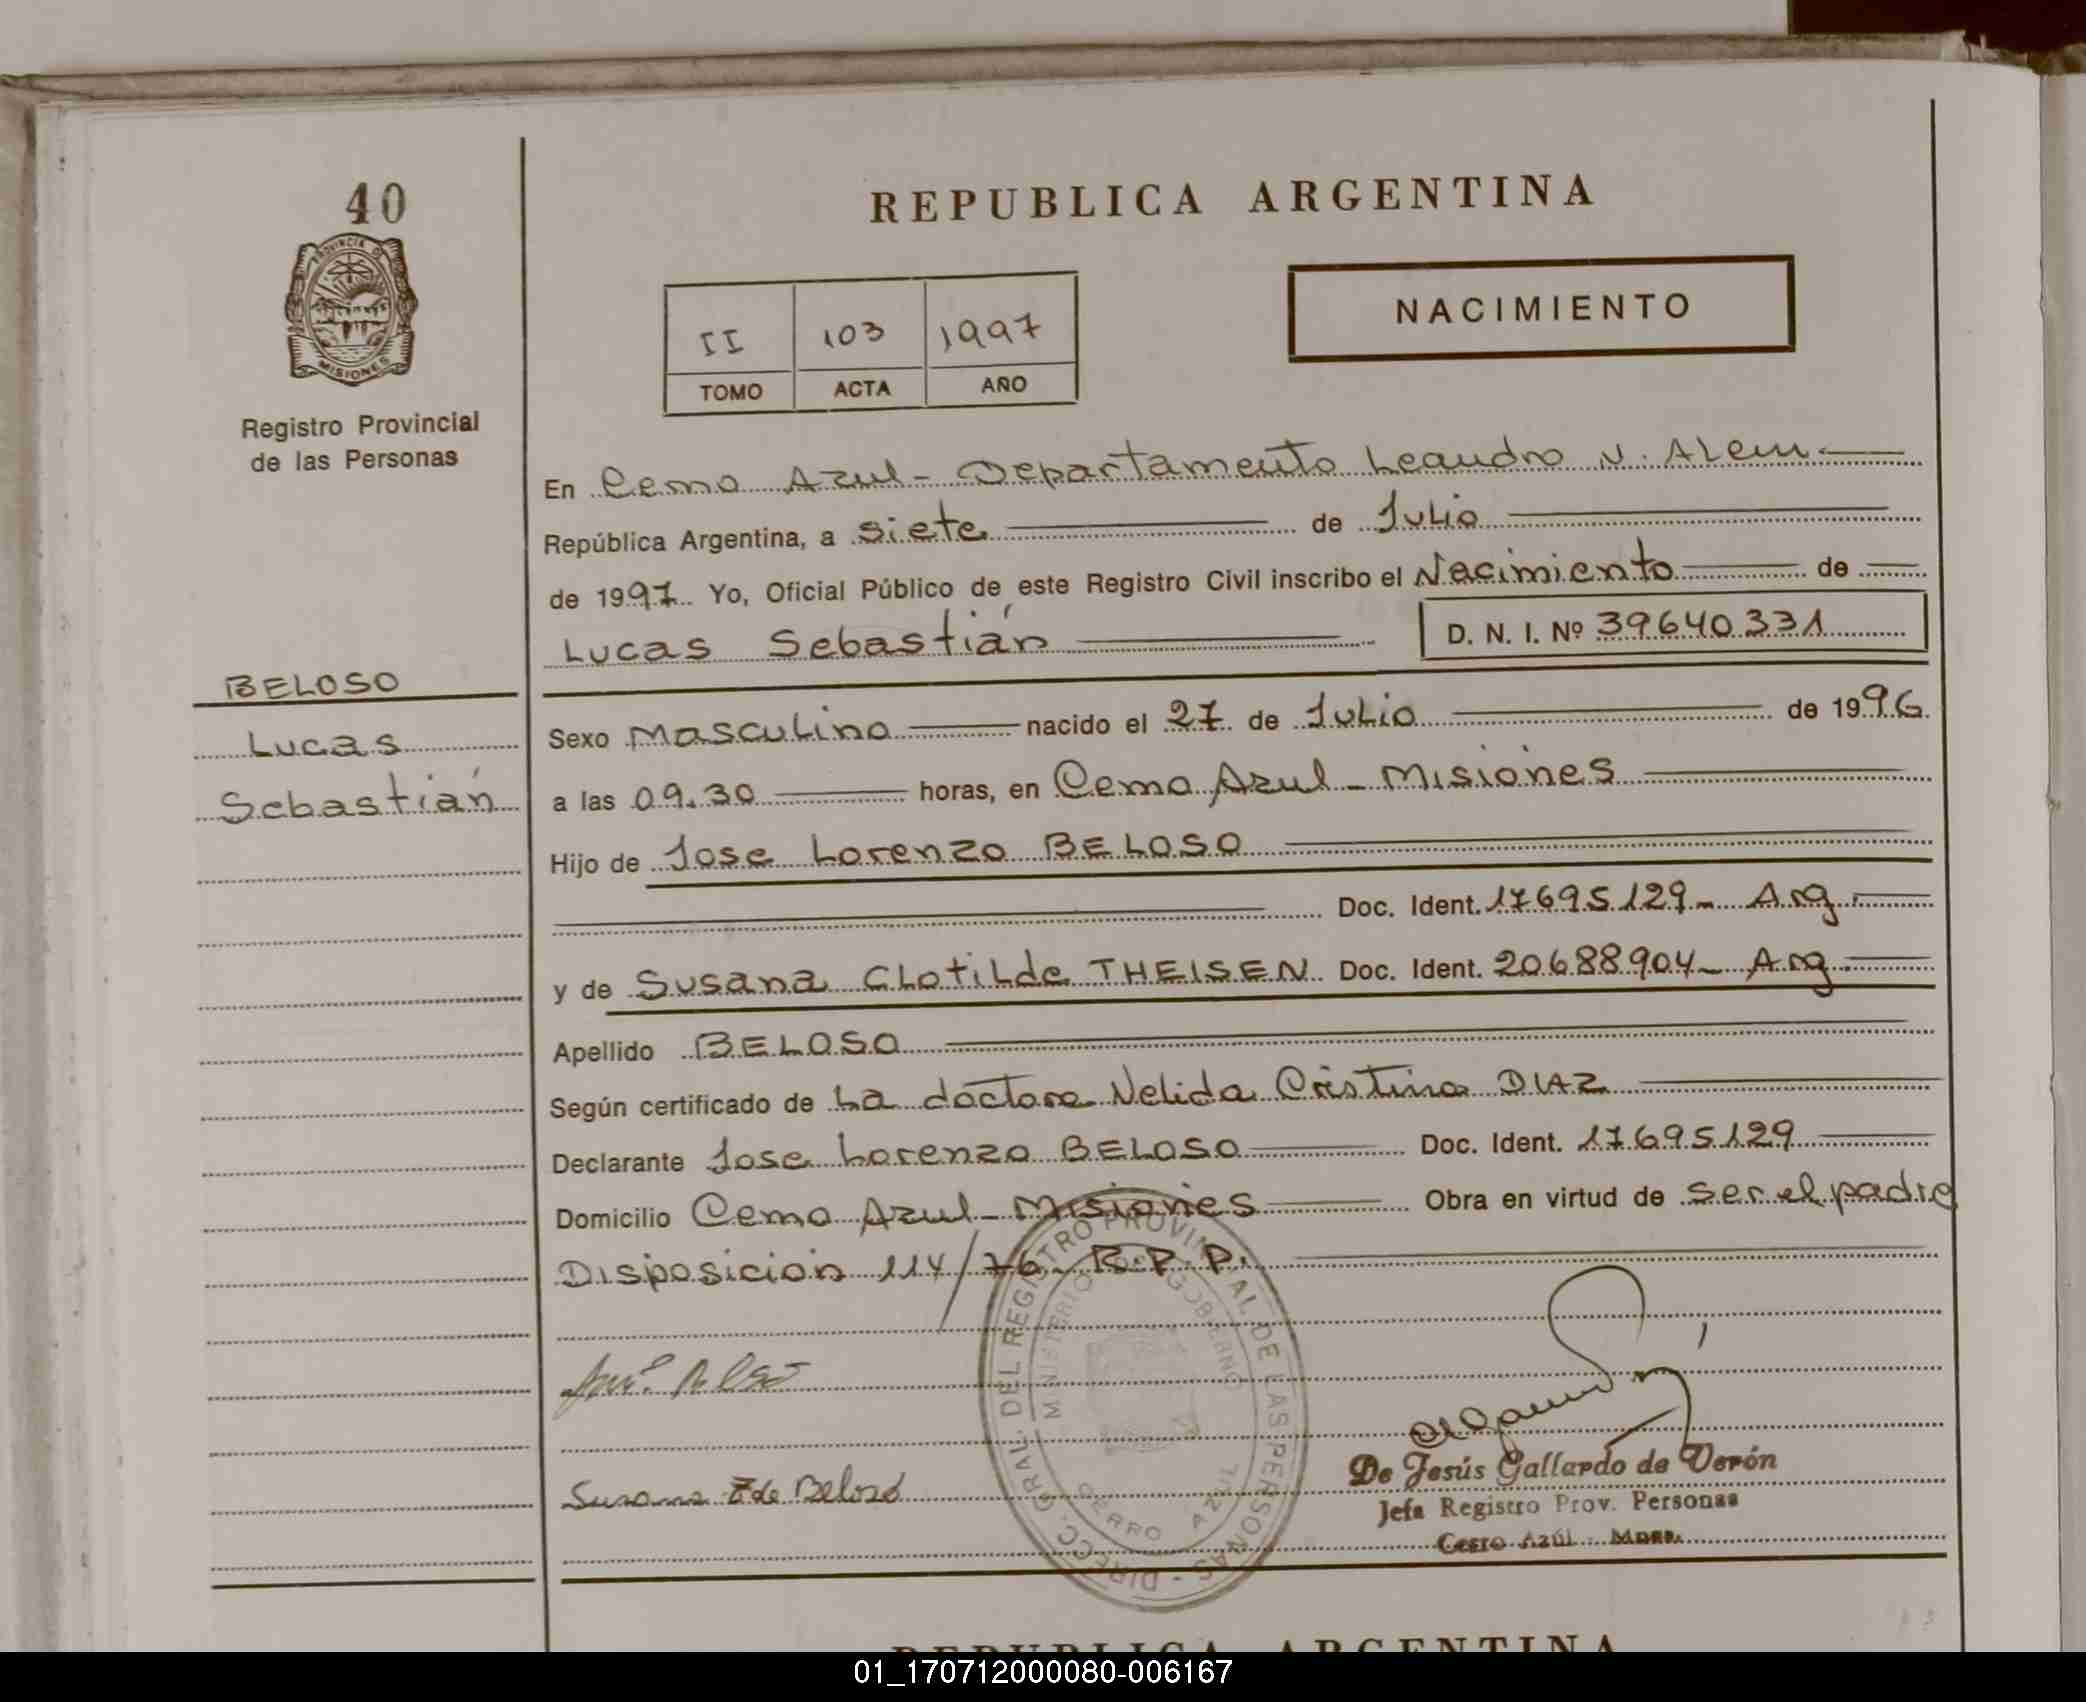 40
PROVINCIA DE
MISIONES
Registro Provincial
de las Personas
BELOSO
Lucas
Sebastián
REPUBLICA ARGENTINA
II 103 1997
TOMO ACTA AÑO
NACIMIENTO
En Cerro Azul - Departamento Leandro N. Alem
República Argentina, a siete de Julio
de 1997 Yo, Oficial Público de este Registro Civil inscribo el Nacimiento de
Lucas Sebastián D. N. I. Nº 39640331
Sexo Masculino nacido el 27 de Julio de 1996
a las 09.30 horas, en Cerro Azul - Misiones
Hijo de Jose Lorenzo BELOSO
Doc. Ident. 17695129 - Arg
y de Susana Clotilde THEISEN Doc. Ident. 20688904 - Arg
Apellido BELOSO
Según certificado de La doctora Nelida Cristina DIAZ
Declarante Jose Lorenzo BELOSO Doc. Ident. 17695129
Domicilio Cerro Azul - Misiones Obra en virtud de ser el padre
Disposicion 114/76 R.P.P.
DIRECC. GRAL. DEL REGISTRO PROVINCIAL DE LAS PERSONAS -
MINISTERIO GOBIERNO
CERRO AZUL
Susana T de Beloso
De Jesús Gallardo de Verón
Jefa Registro Prov. Personas
Cerro Azúl - Mnes.
REPUBLICA ARGENTINA
01_170712000080-006167